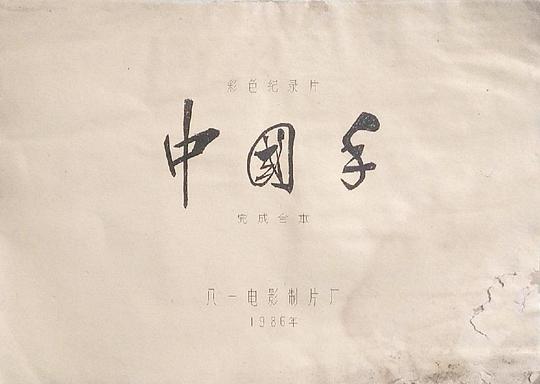 彩色纪录片
中國手
完成台本
八一电影制片厂
1986年